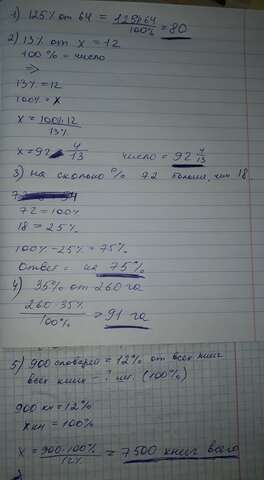 1) 125% от 64 = 125%·64 / 100% = 80
2) 13% от x = 12
100% = число
⇒
13% = 12
100% = x
x = 100%·12 / 13%
x = 92 4/13 число = 92 4/13
3) на сколько % 72 больше, чем 18.
72 = 100%
18 = 25%
100% - 25% = 75%
Ответ: на 75%
4) 35% от 260 га
260·35% / 100% = 91 га
5) 900 словарей = 12% от всех книг
всех книг - ? шт. (100%)
900 кн = 12%
x кн = 100%
x = 900·100% / 12% = 7500 книг всего